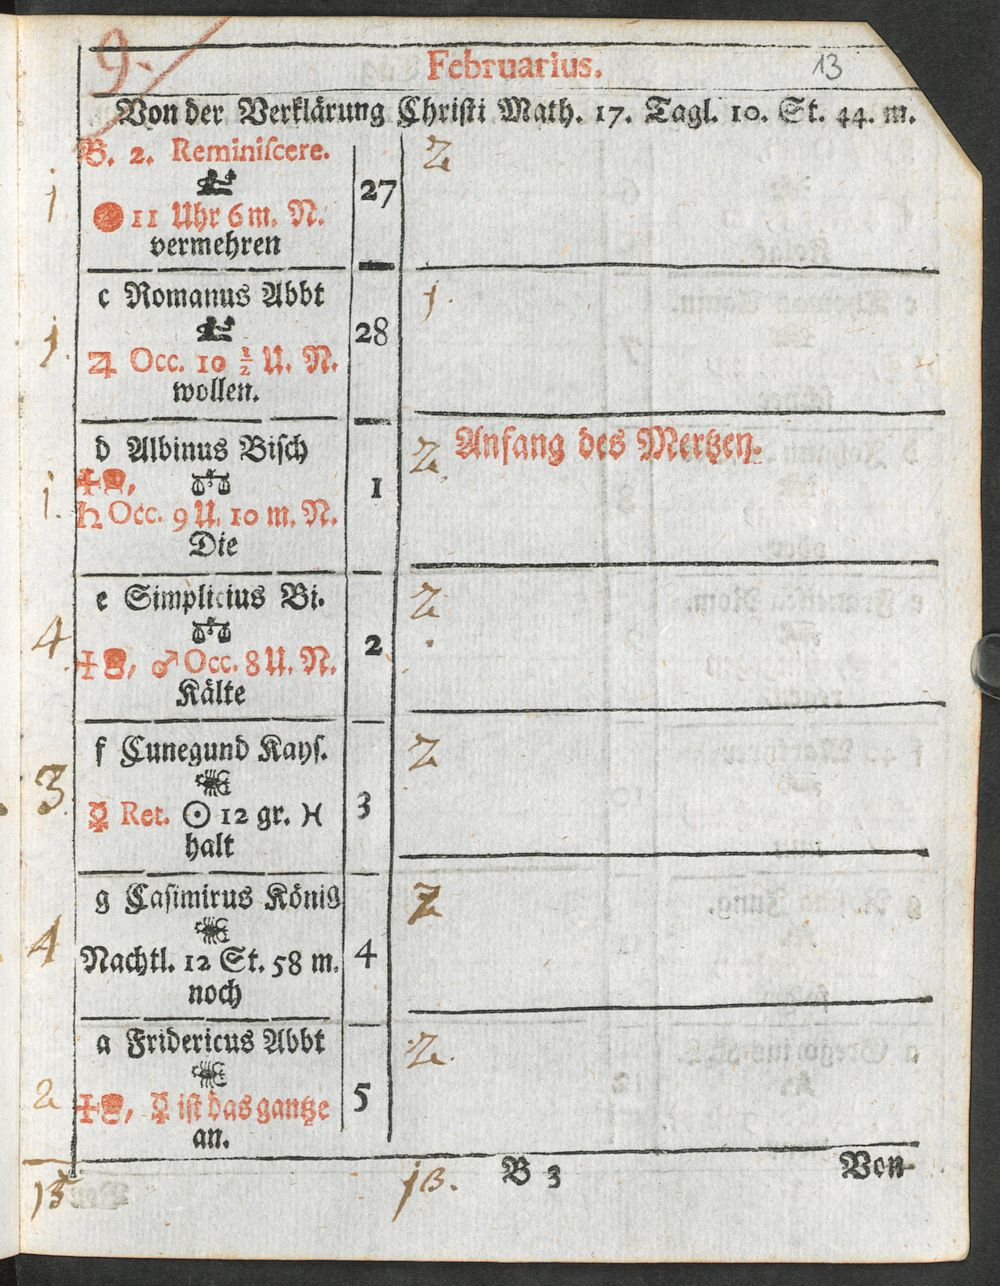 9.
Februarius.
13
Von der Verklärung Christi Math. 17. Tagl. 10. St. 44. m.
B. 2. Reminiscere.
1 27 2
11 Uhr 6 m. N.
vermehren
c Romanus Abbt
1. 28 1.
♃ Occ. 10 ½ U. N.
wollen.
d Albinus Bisch
2 Anfang des Mertzen.
1. ♎ 1
♄ Occ. 9 U. 10 m. N.
Die
e Simplicius Bi.
4. ♎ 2 2
♂ Occ. 8 U. N.
Kälte
f Cunegund Kays.
3. ♏ 3 2
☿ Ret. ☉ 12 gr. ♓
halt
g Casimirus König
4 ♏ 4 2
Nachtl. 12 St. 58 m.
noch
a Fridericus Abbt
2 ♏ 5 2.
☿ ist das gantze
an.
B 3 Von